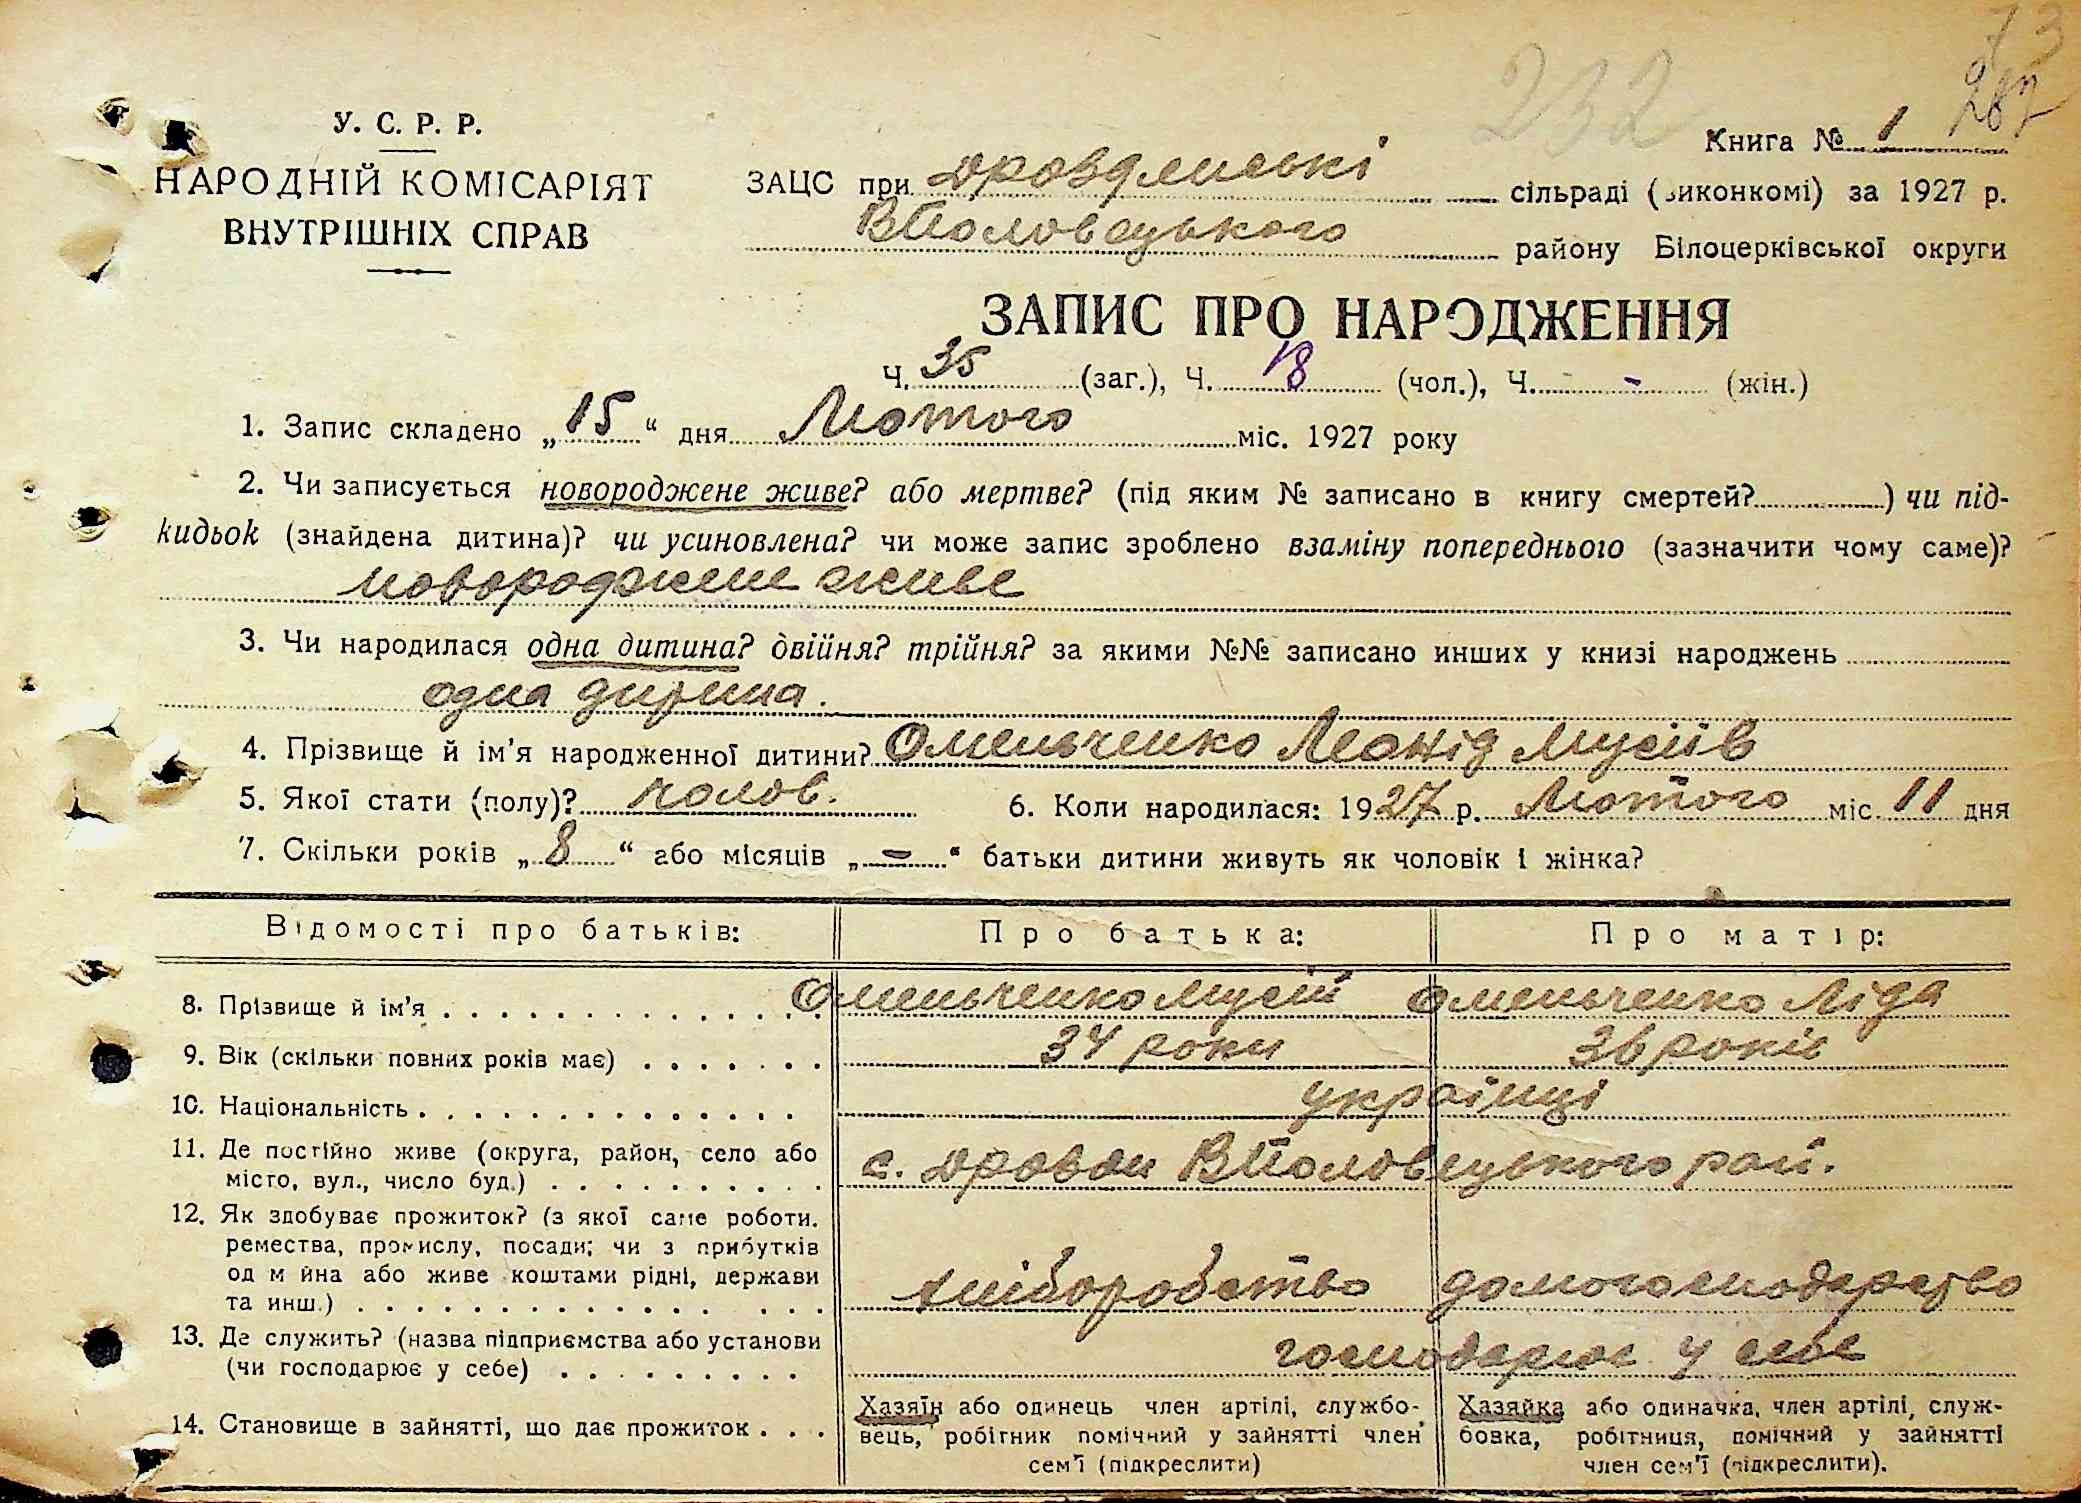 73
232
287
У. С. Р. Р.
НАРОДНІЙ КОМІСАРІЯТ
ВНУТРІШНІХ СПРАВ
Книга № 1
ЗАЦС при Дроздянські сільраді (виконкомі) за 1927 р.
ВПоловецького району Білоцерківської округи
ЗАПИС ПРО НАРОДЖЕННЯ
Ч. 35 (заг.), Ч. 18 (чол.), Ч. - (жін.)
1. Запис складено „15“ дня Лютого міс. 1927 року
2. Чи записується новороджене живе? або мертве? (під яким № записано в книгу смертей? ) чи під-
кидьок (знайдена дитина)? чи усиновлена? чи може запис зроблено взаміну попереднього (зазначити чому саме)?
новороджене живе
3. Чи народилася одна дитина? двійня? трійня? за якими №№ записано инших у книзі народжень
одна дитина.
4. Прізвище й ім’я народженної дитини? Омельченко Леонід Мусіїв
5. Якої стати (полу)? чолов. 6. Коли народилася: 1927 р. Лютого міс. 11 дня
7. Скільки років „8“ або місяців „-“ батьки дитини живуть як чоловік і жінка?
Відомості про батьків: Про батька: Про матір:
8. Прізвище й ім’я Омельченко Мусій Омельченко Ліда
9. Вік (скільки повних років має) 34 роки 36 років
10. Національність українці
11. Де постійно живе (округа, район, село або
місто, вул., число буд.) с. Дрозди ВПоловецького рай.
12. Як здобуває прожиток? (з якої саме роботи.
ремества, промислу, посади; чи з прибутків
од майна або живе коштами рідні, держави
та инш.) хліборобство домогосподарство
13. Де служить? (назва підприємства або установи
(чи господарює у себе) господарює у себе
14. Становище в зайнятті, що дає прожиток
Хазяїн або одинець член артілі, службо-
вець, робітник помічний у зайнятті член
сем’ї (підкреслити)
Хазяйка або одиначка, член артілі, служ-
бовка, робітниця, помічний у зайнятті
член сем’ї (підкреслити).